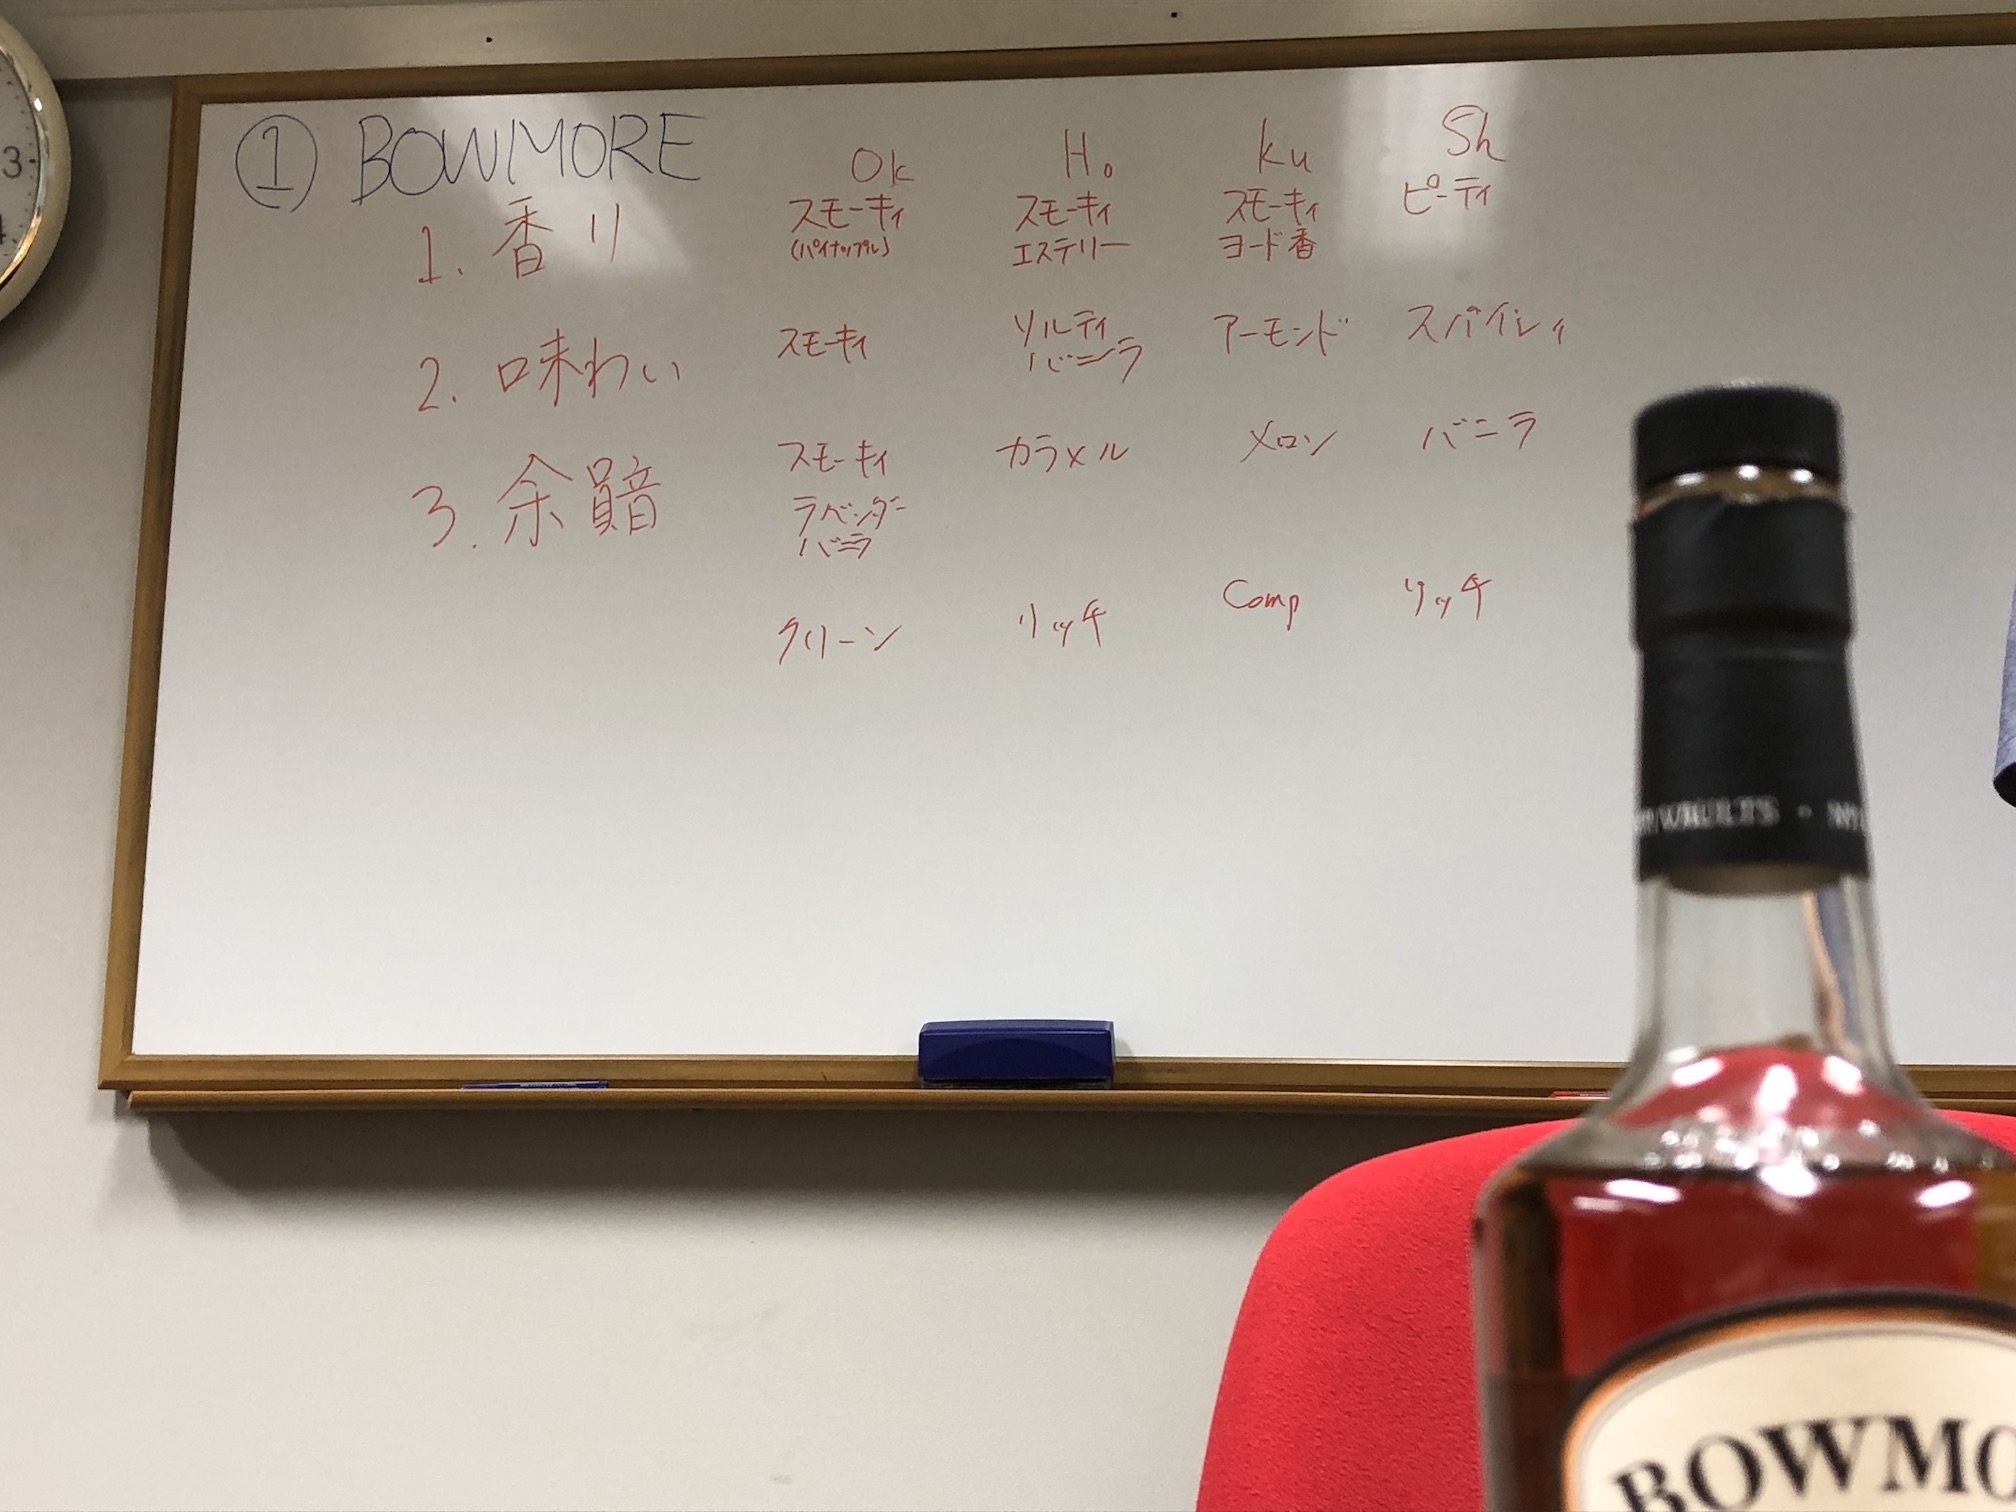 ① BOWMORE
Ok Ho Ku Sh
1. 香り スモーキィ スモーキィ スモーキィ ピーティ
(パイナップル) エステリー ヨード香
2. 味わい スモーキィ ソルティ アーモンド スパイシィ
バニラ
3. 余韻 スモーキィ カラメル メロン バニラ
ラベンダー
バニラ
クリーン リッチ Comp リッチ
3
4
VAULTS
BOWMO